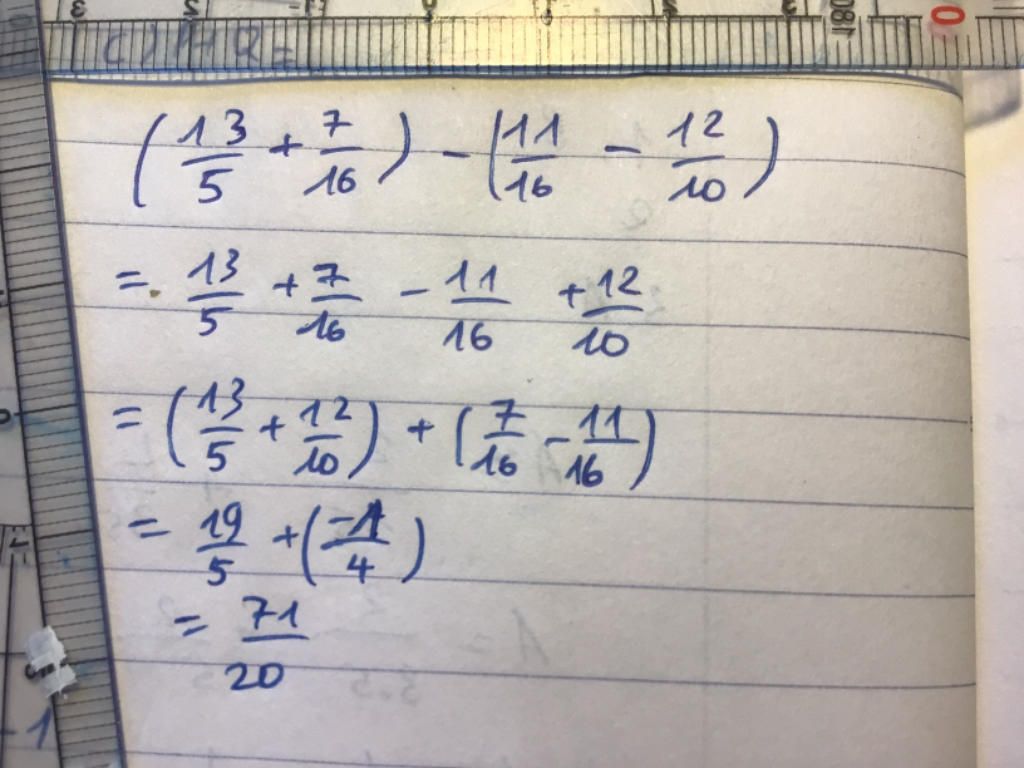 (13/5 + 7/16) - (11/16 - 12/10)
= 13/5 + 7/16 - 11/16 + 12/10
= (13/5 + 12/10) + (7/16 - 11/16)
= 19/5 + (-1/4)
= 71/20